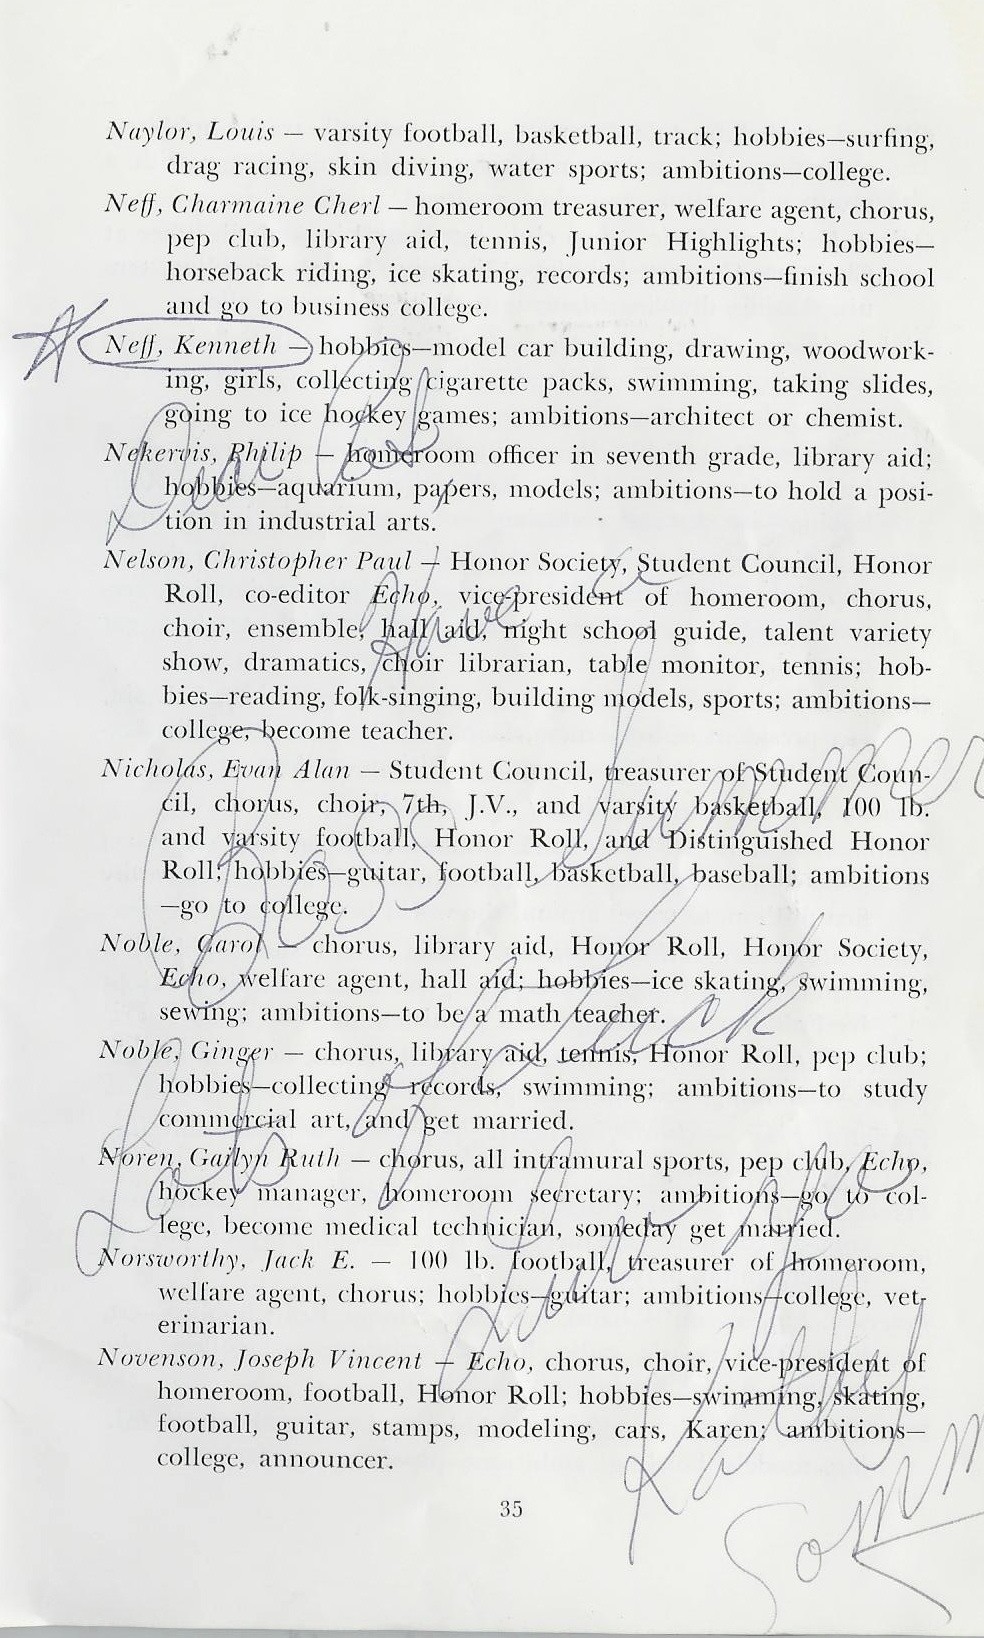 Naylor, Louis — varsity football, basketball, track; hobbies—surfing,
drag racing, skin diving, water sports; ambitions—college.
Neff, Charmaine Cherl — homeroom treasurer, welfare agent, chorus,
pep club, library aid, tennis, Junior Highlights; hobbies—
horseback riding, ice skating, records; ambitions—finish school
and go to business college.
Neff, Kenneth — hobbies—model car building, drawing, woodwork-
ing, girls, collecting cigarette packs, swimming, taking slides,
going to ice hockey games; ambitions—architect or chemist.
Nekervis, Philip — homeroom officer in seventh grade, library aid;
hobbies—aquarium, papers, models; ambitions—to hold a posi-
tion in industrial arts.
Nelson, Christopher Paul — Honor Society, Student Council, Honor
Roll, co-editor Echo, vice-president of homeroom, chorus,
choir, ensemble, hall aid, night school guide, talent variety
show, dramatics, choir librarian, table monitor, tennis; hob-
bies—reading, folk-singing, building models, sports; ambitions—
college, become teacher.
Nicholas, Evan Alan — Student Council, treasurer of Student Coun-
cil, chorus, choir, 7th, J.V., and varsity basketball, 100 lb.
and varsity football, Honor Roll, and Distinguished Honor
Roll; hobbies—guitar, football, basketball, baseball; ambitions
—go to college.
Noble, Carol — chorus, library aid, Honor Roll, Honor Society,
Echo, welfare agent, hall aid; hobbies—ice skating, swimming,
sewing; ambitions—to be a math teacher.
Noble, Ginger — chorus, library aid, tennis, Honor Roll, pep club;
hobbies—collecting records, swimming; ambitions—to study
commercial art, and get married.
Noren, Gailyn Ruth — chorus, all intramural sports, pep club, Echo,
hockey manager, homeroom secretary; ambitions—go to col-
lege, become medical technician, someday get married.
Norsworthy, Jack E. — 100 lb. football, treasurer of homeroom,
welfare agent, chorus; hobbies—guitar; ambitions—college, vet-
erinarian.
Novenson, Joseph Vincent — Echo, chorus, choir, vice-president of
homeroom, football, Honor Roll; hobbies—swimming, skating,
football, guitar, stamps, modeling, cars, Karen; ambitions—
college, announcer.
35
Have a
Boss Summer
Lots of Luck
Kathy